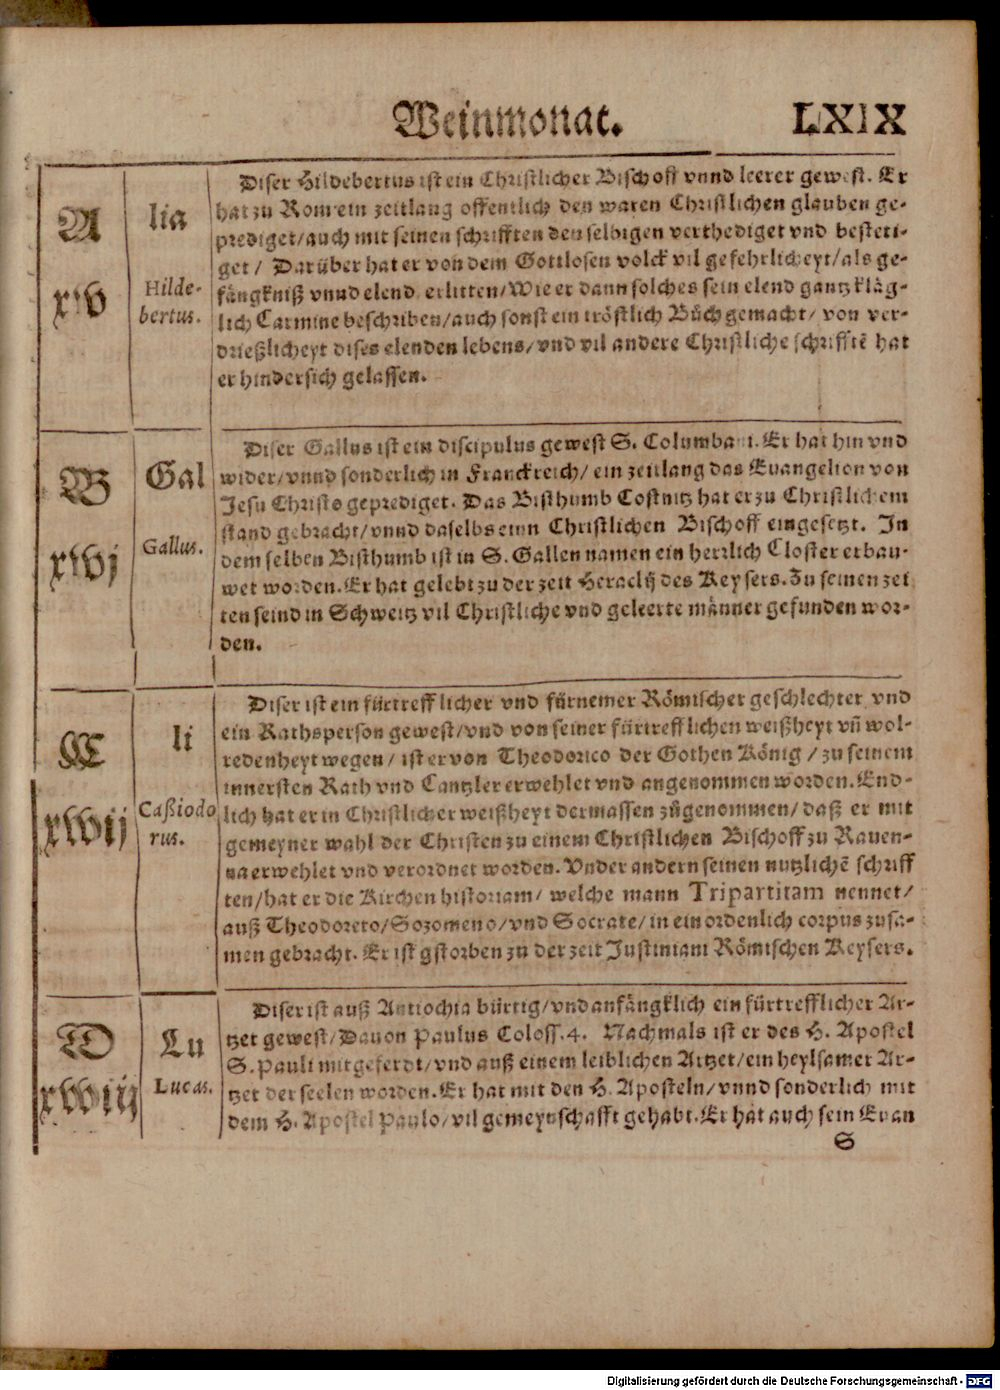 Weinmonat. LXIX
A
xv
lia
Hilde-
bertus.
Diser Hildebertus ist ein Christlicher Bischoff vnnd leerer gewest. Er
hat zu Rom ein zeitlang offentlich den waren Christlichen glauben ge-
prediget/auch mit seinen schrifften den selbigen verthediget vnd besteti-
get/ Darüber hat er von dem Gottlosen volck vil gefehrlicheyt/als ge-
fängkniß vnnd elend erlitten/Wie er dann solches sein elend gantz kläg-
lich Carmine beschriben/auch sonst ein tröstlich Bůch gemacht/ von ver-
drießlicheyt dises elenden lebens/vnd vil andere Christliche schrifftē hat
er hindersich gelassen.
B
xvj
Gal
Gallus.
Diser Gallus ist ein discipulus gewest S. Columbani. Er hat hin vnd
wider/vnnd sonderlich in Franckreich/ ein zeitlang das Euangelion von
Jesu Christo geprediget. Das Bisthumb Costnitz hat er zu Christlichem
stand gebracht/vnnd daselbs einn Christlichen Bischoff eingesetzt. In
dem selben Bisthumb ist in S. Gallen namen ein herrlich Closter erbau-
wet worden. Er hat gelebt zu der zeit Heraclij des Keysers. Zu seinen zei
ten seind in Schweitz vil Christliche vnd geleerte männer gefunden wor-
den.
C
xvij
li
Caßiodo
rus.
Diser ist ein fürtrefflicher vnd fürnemer Römischer geschlechter vnd
ein Rathsperson gewest/vnd von seiner fürtrefflichen weißheyt vñ wol-
redenheyt wegen/ ist er von Theodorico der Gothen König / zu seinem
innersten Rath vnd Cantzler erwehlet vnd angenommen worden. End-
lich hat er in Christlicher weißheyt dermassen zůgenommen/ daß er mit
gemeyner wahl der Christen zu einem Christlichen Bischoff zu Rauen-
na erwehlet vnd verordnet worden. Vnder andern seinen nutzlichē schriff
ten/hat er die Kirchen historiam/ welche mann Tripartitam nennet/
auß Theodoreto/Sozomeno/vnd Socrate/in ein ordenlich corpus zusa-
men gebracht. Er ist gstorben zu der zeit Justiniani Römischen Keysers.
D
xviij
Lu
Lucas.
Diser ist auß Antiochia bürtig/vnd anfängklich ein fürtrefflicher Ar-
tzet gewest/Dauon Paulus Coloss. 4. Nachmals ist er des H. Apostel
S. Pauli mitgeferdt/vnd auß einem leiblichen Artzet/ein heylsamer Ar-
tzet der seelen worden. Er hat mit den H. Aposteln/vnnd sonderlich mit
dem H. Apostel Paulo/vil gemeynschafft gehabt. Er hat auch sein Euan
S
Digitalisierung gefördert durch die Deutsche Forschungsgemeinschaft - DFG